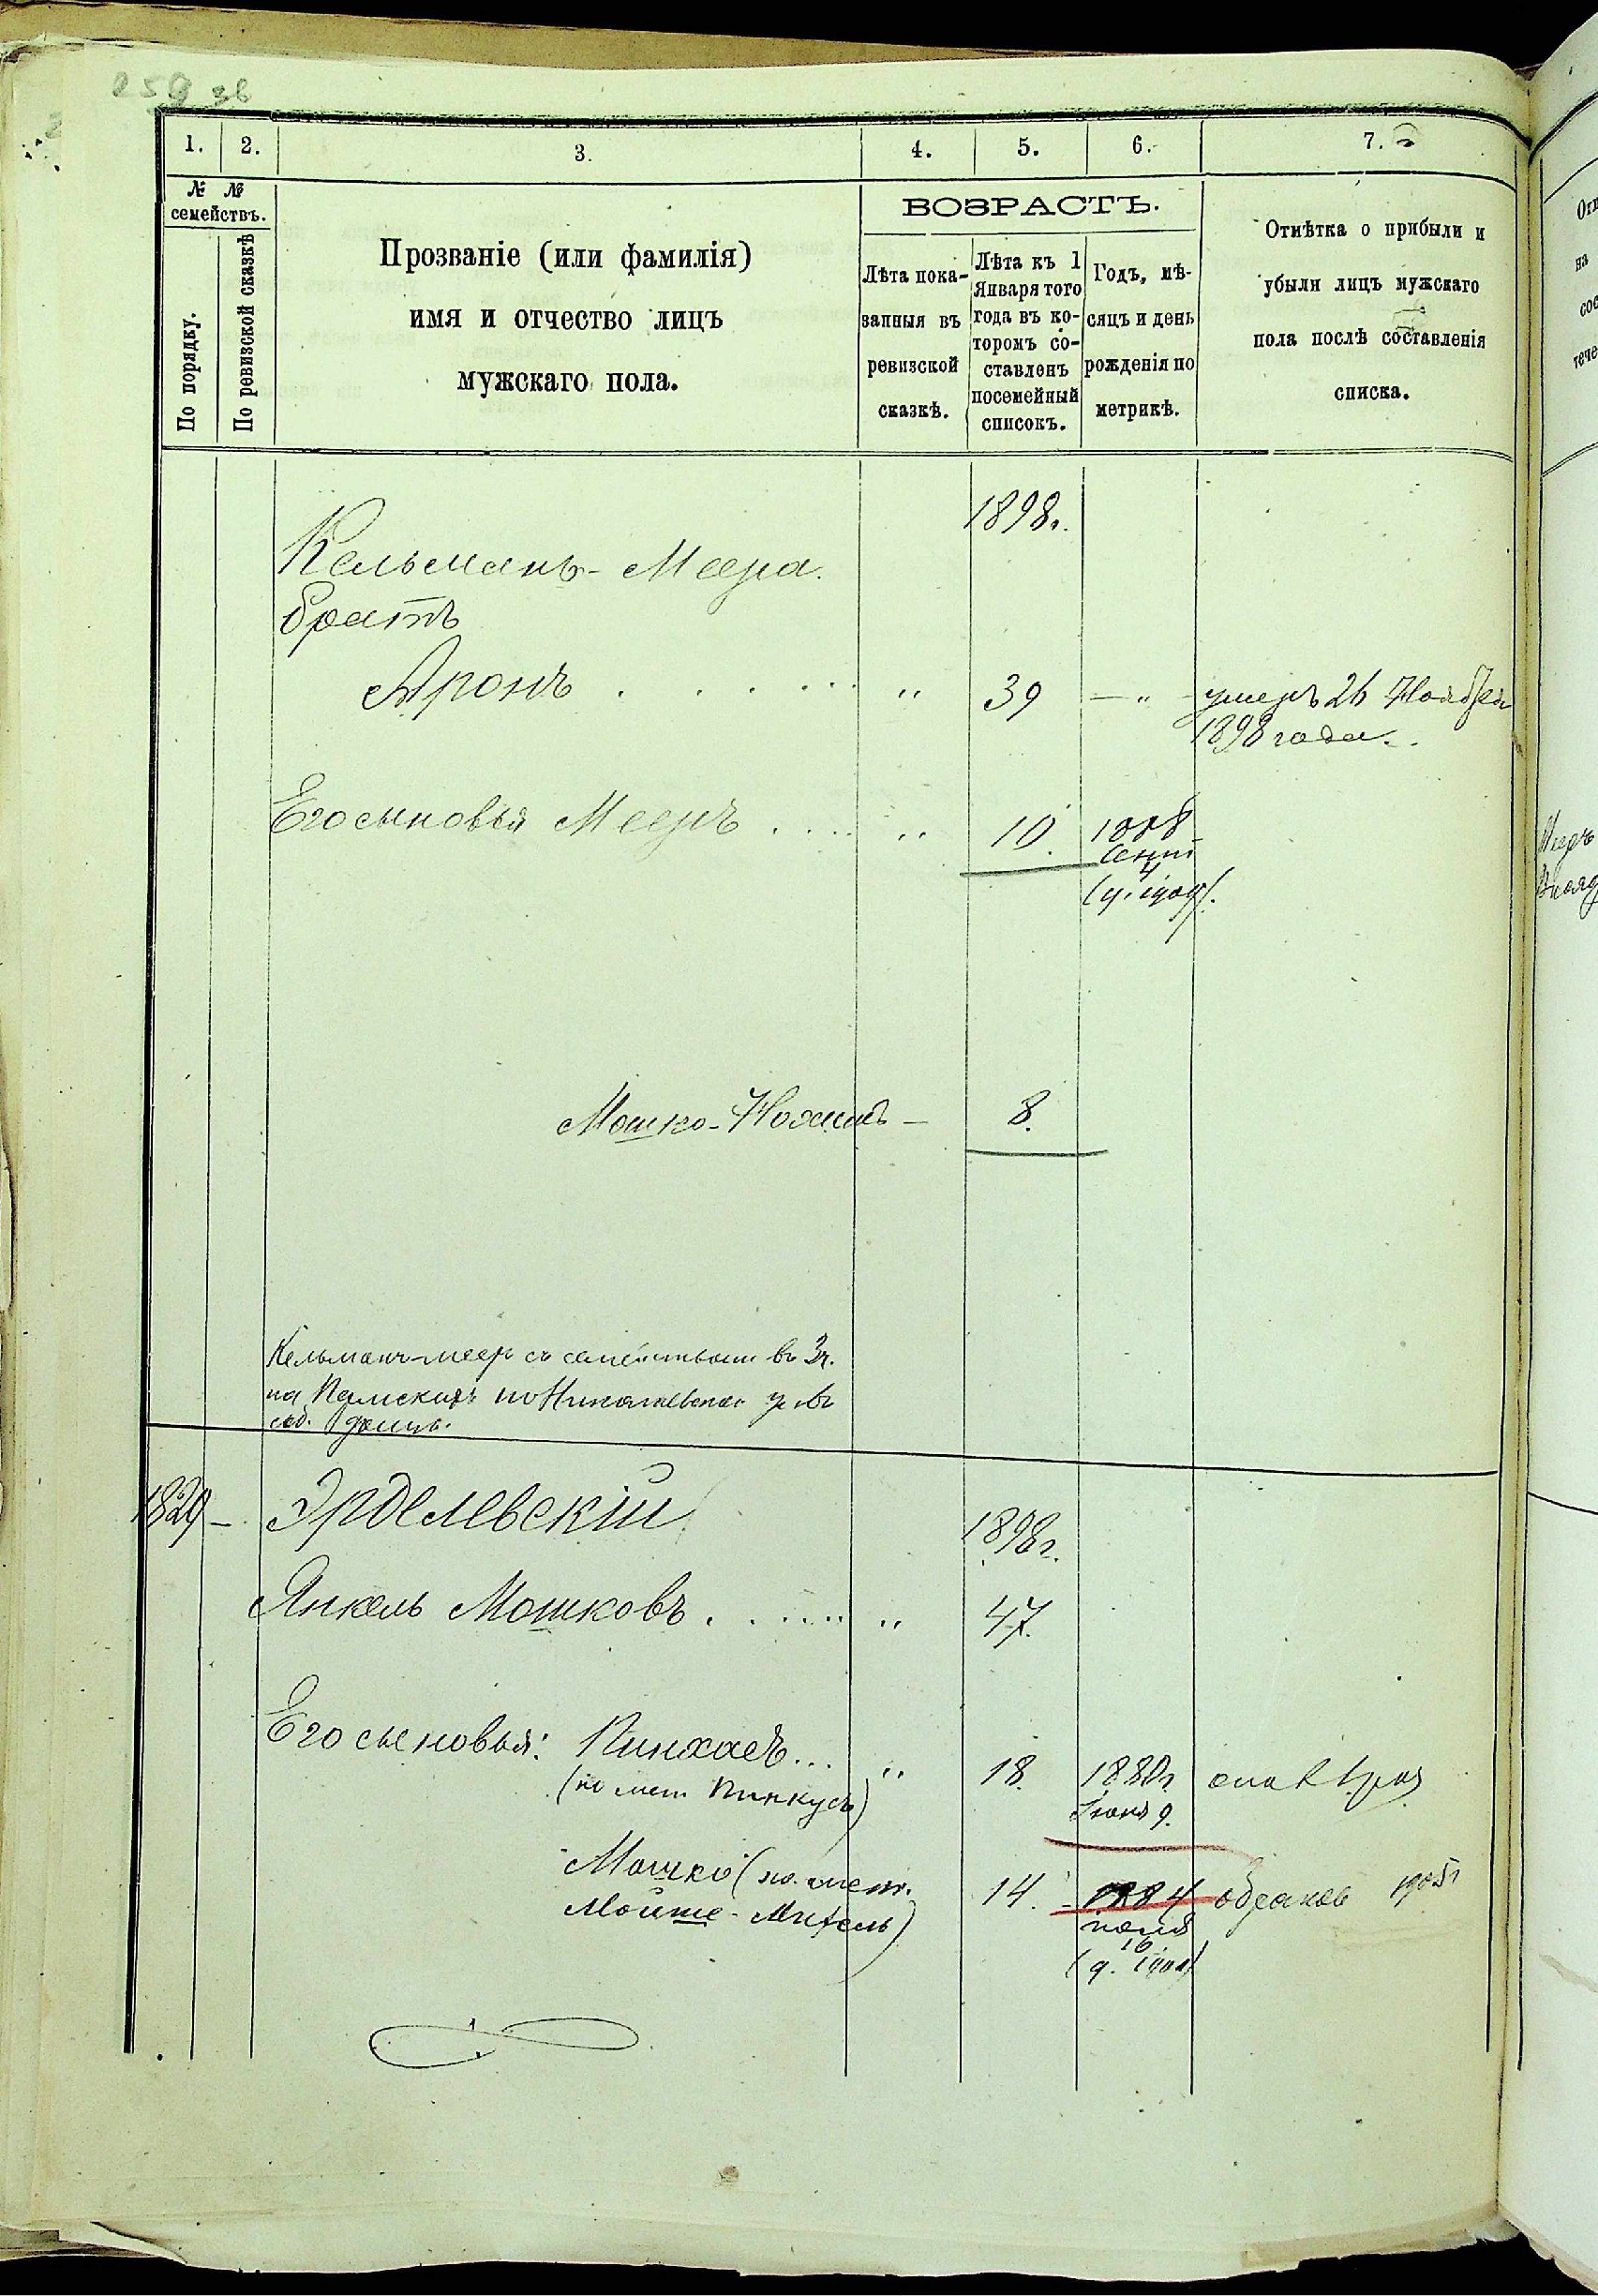 059 зв
1. 2. 3. 4. 5. 6. 7.
№ №
семействъ.
По порядку.
По ревизской сказкѣ
Прозваніе (или фамилія)
имя и отчество лицъ
мужскаго пола.
ВОЗРАСТЪ.
Лѣта пока-
занныя въ
ревизской
сказкѣ.
Лѣта къ 1
Января того
года въ ко-
торомъ со-
ставленъ
посемейный
списокъ.
Годъ, мѣ-
сяцъ и день
рожденія по
метрикѣ.
Отмѣтка о прибыли и
убыли лицъ мужскаго
пола послѣ составленія
списка.
1898г.
Кельманъ-Меера
братъ
Аронъ . . . . . . „ 39 — „ — умеръ 26 Ноября
1898 года.
Его сыновья Мееръ . . . . „ 10. 1888
Сент
4
Мошко-Нохимъ — 8.
Кельманъ-Мееръ съ семействомъ въ 3ч.
на
соб. домѣ.
1829 — Эрделевскій 1898г.
Янкель Мошковъ . . . . . . „ 47.
Его сыновья: Пинхасъ... „ 18. 1880г.
(по мет. Пинкусъ) Іюня 9.
Мошко (по мет. 14. 1884 1905г
Мойше-Михель)
16